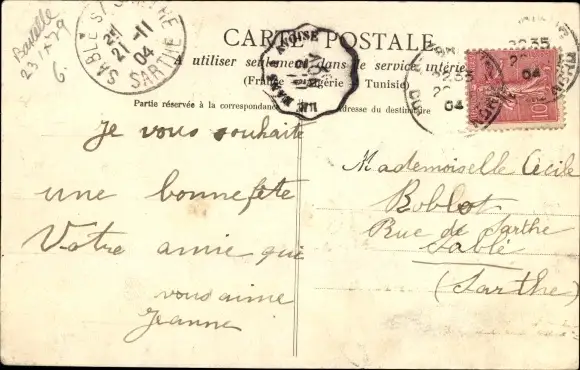 Bazeille
23-7-79
6.
SABLÉ S/ SARTHE
21-11
04
SARTHE
CARTE POSTALE
A utiliser seulement dans le service intérieur
(France Algérie Tunisie)
Partie réservée à la correspondance
Adresse du destinataire
04
10
Je vous souhaite
une bonne fête
Votre amie qui
vous aime
Jeanne
Mademoiselle Cécile
Roblot
Rue de Sarthe
Sablé
(Sarthe)